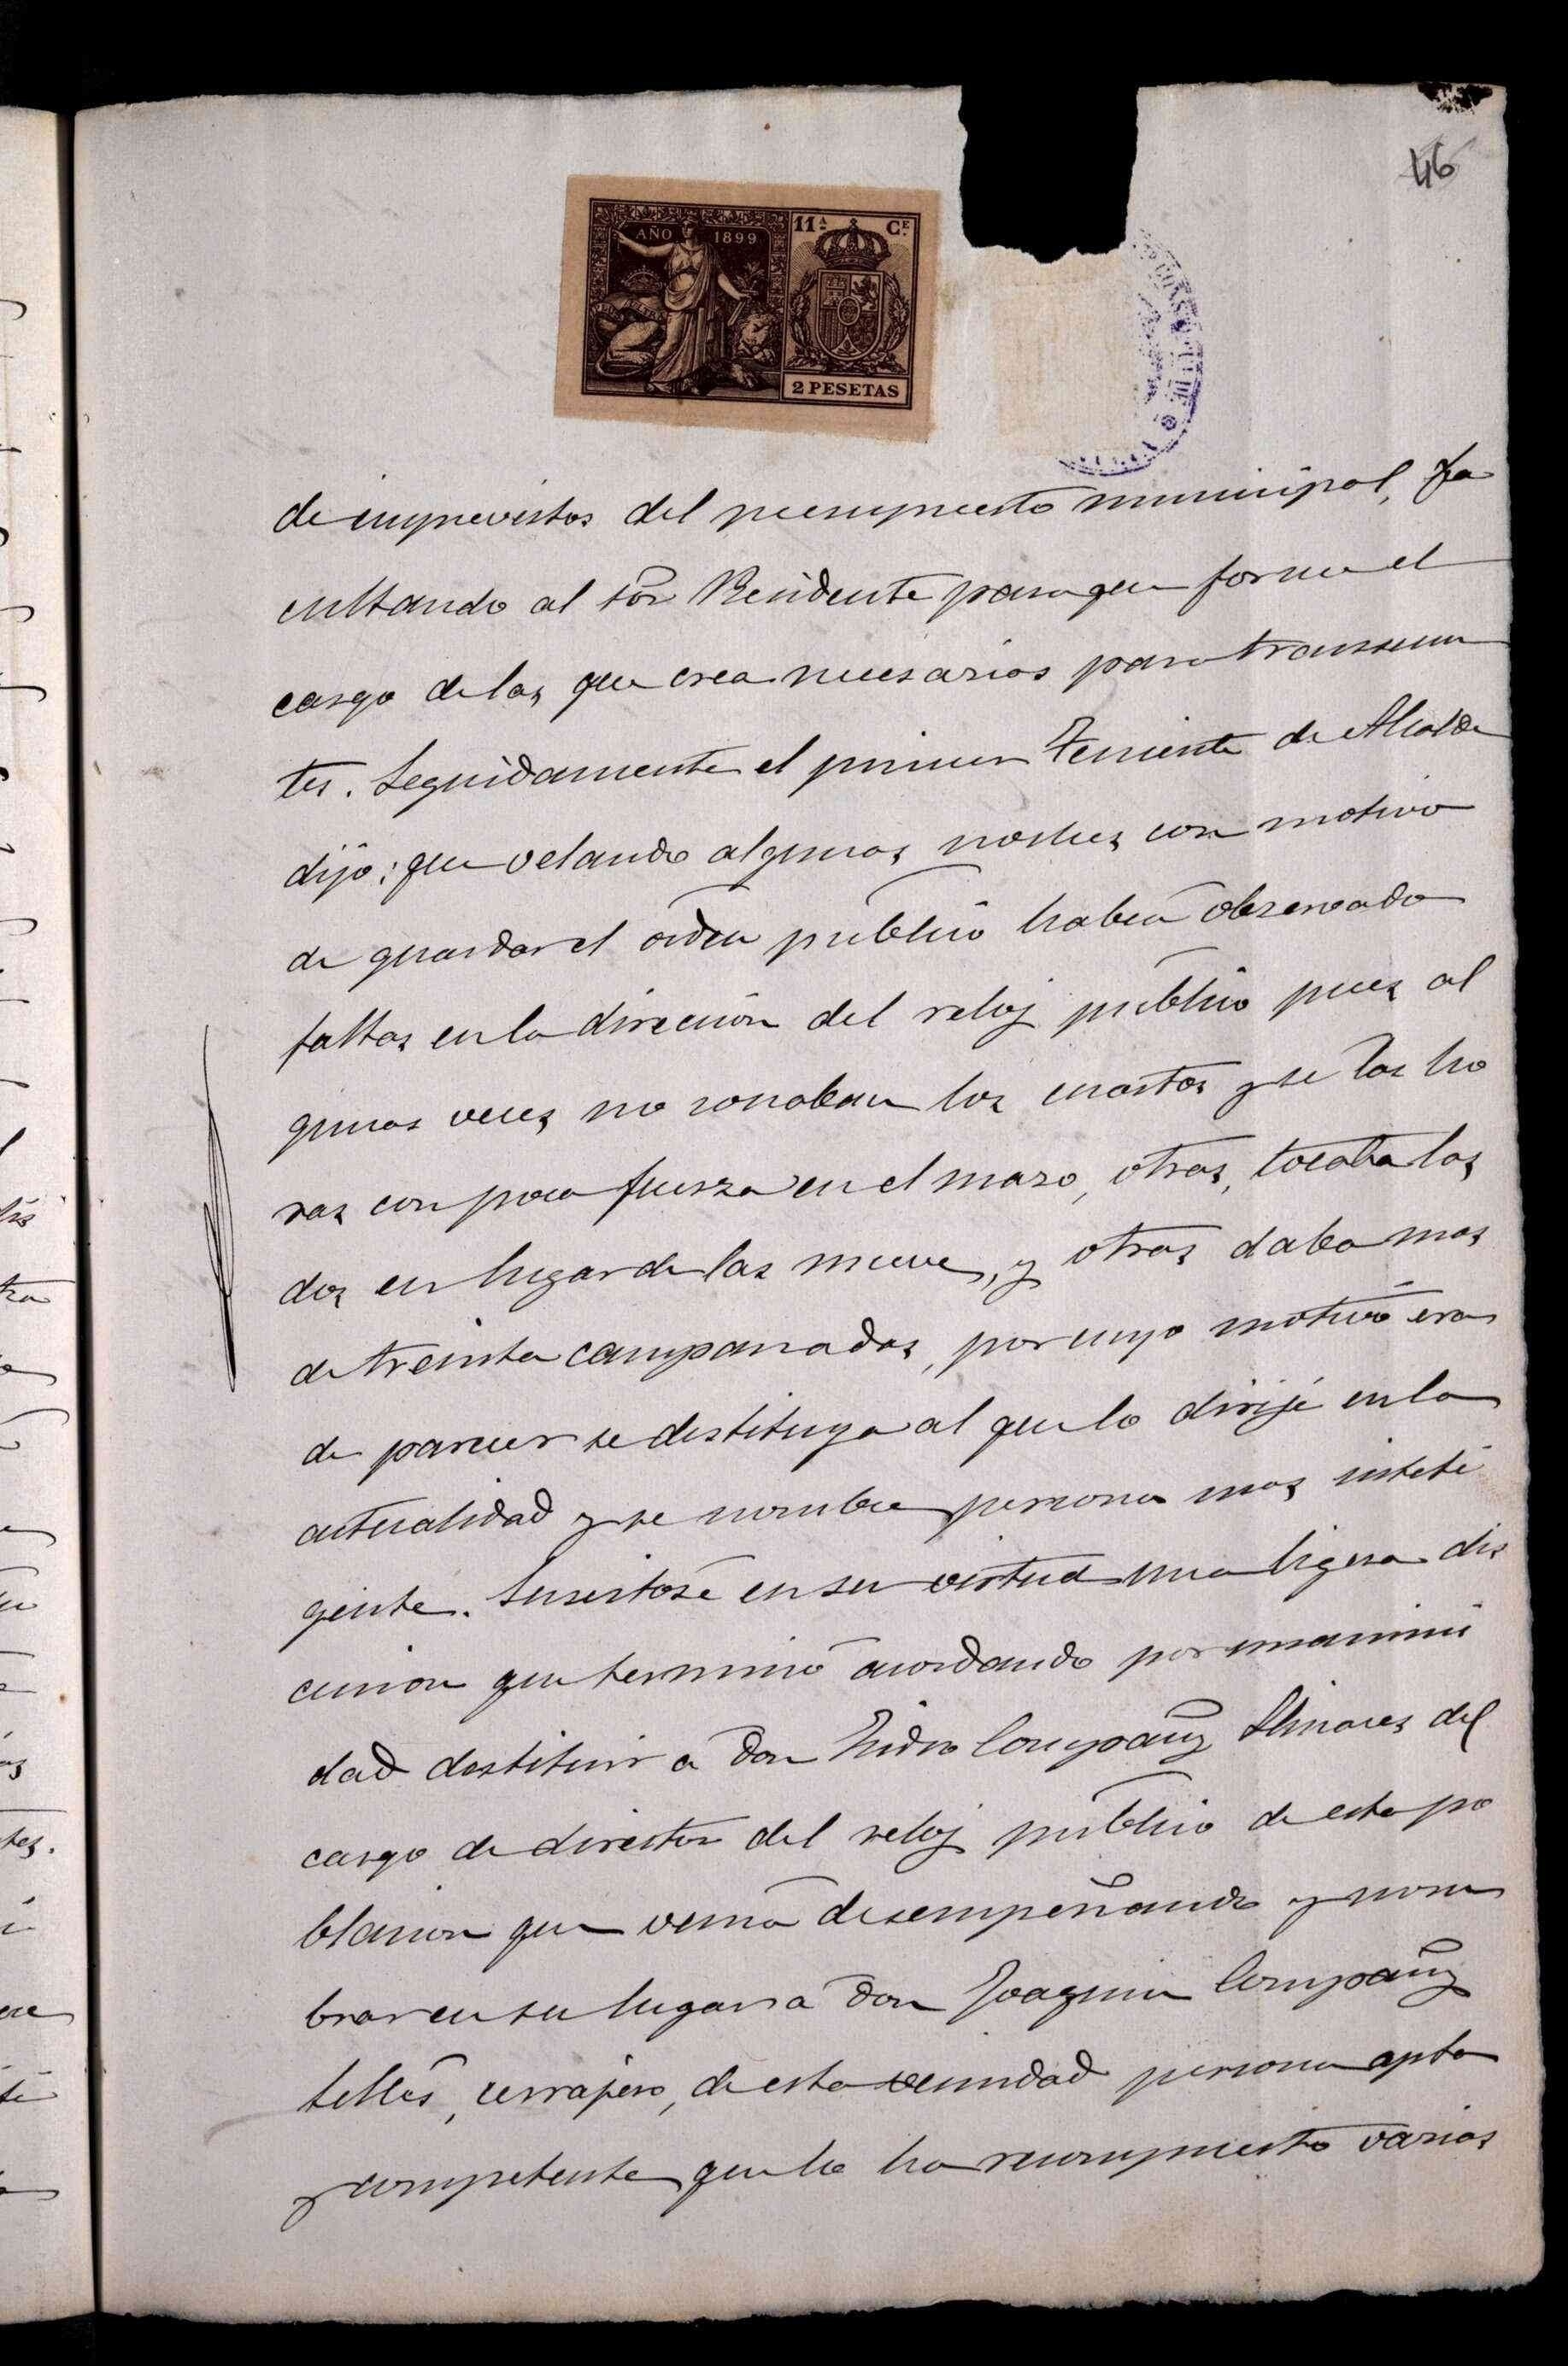 46
AÑO 1899
11ª Cᴱ
2 PESETAS
de imprevistos del presupuesto municipal, fa
cultando al Sor Presidente para que forme el
cargo de las que crea necesarios para transeun
tes. Seguidamente el primer Teniente de Alcalde
dijo: que velando algunas noches con motivo
de guardar el orden publico habia observado
faltas en la direccion del reloj publico pues al
gunas veces no sonaban los cuartos y se las ho
ras con poca fuerza en el mazo, otras, tocaba las
dos en lugar de las nueve, y otras daba mas
de treinta campanadas, por cuyo motivo era
de parecer se destituya al que lo dirije en la
actualidad y se nombre persona mas inteli
gente. Suscitose en su virtud una ligera dis
cusion que terminó acordando por unanimi
dad destituir á Don Isidro Compañy Llinares del
cargo de director del reloj publico de esta po
blacion que venia desempeñando y nom
brar en su lugar á Don Joaquin Compañy
Sellés, cerrajero, de esta vecindad persona apta
y competente que lo ha recompuesto varias